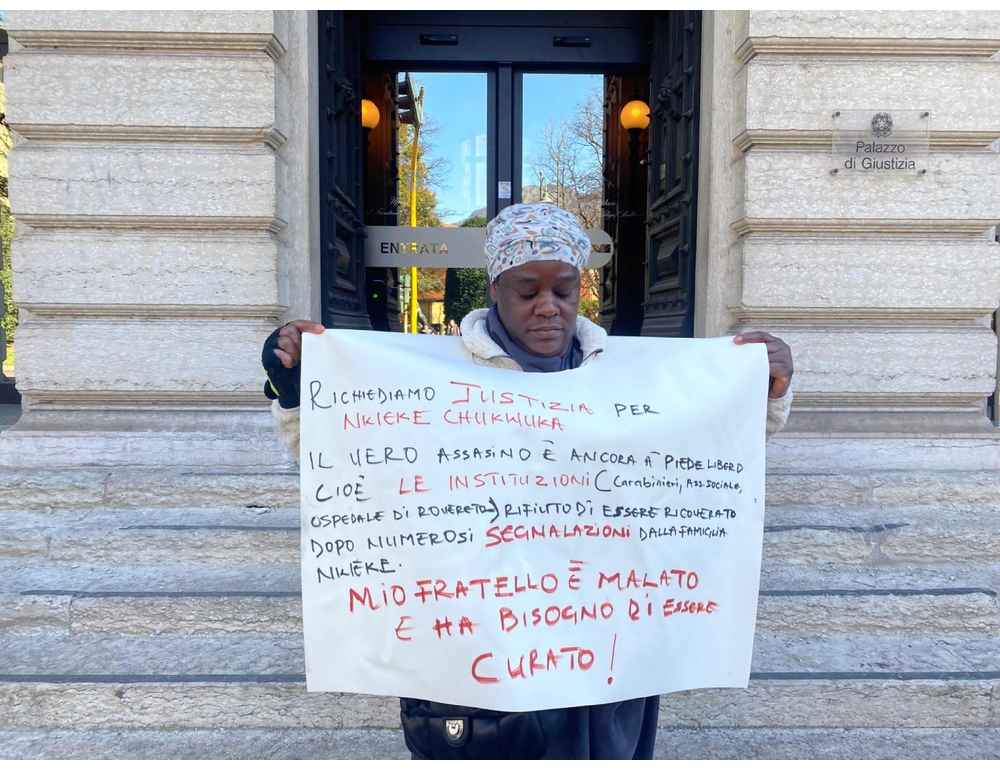 Palazzo
di Giustizia
ENTRATA
RICHIEDIAMO JUSTIZIA PER
NKIEKE CHUKWUKA
IL VERO ASSASINO È ANCORA A PIEDE LIBERO
CIOÈ LE INSTITUZIONI (Carabinieri, Ass. sociale,
OSPEDALE DI ROVERETO) RIFIUTO DI ESSERE RICOVERATO
DOPO NUMEROSI SEGNALAZIONI DALLA FAMIGLIA
NKIEKE.
MIO FRATELLO È MALATO
E HA BISOGNO DI ESSERE
CURATO!